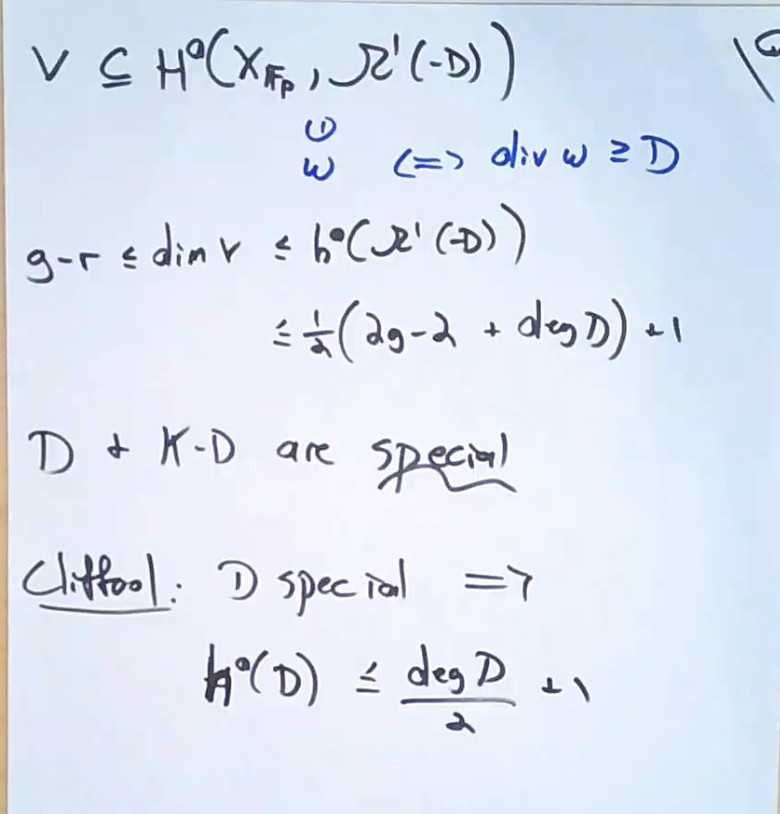 V ⊆ H⁰(X_{F_p}, Ω¹(-D))
ω ⟺ div ω ≥ D
g-r ≤ dim V ≤ h⁰(Ω¹(-D))
≤ ½(2g-2 + deg D) + 1
D + K-D are special
Clifford: D special ⇒
h⁰(D) ≤ deg D / 2 + 1